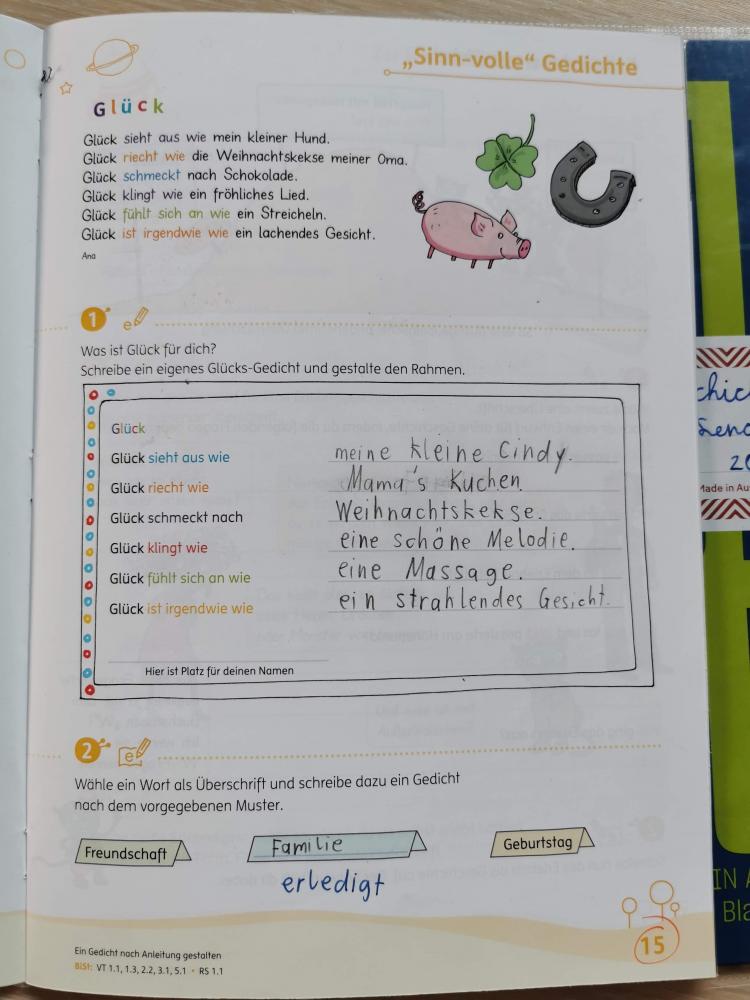 „Sinn-volle“ Gedichte
Glück
Glück sieht aus wie mein kleiner Hund.
Glück riecht wie die Weihnachtskekse meiner Oma.
Glück schmeckt nach Schokolade.
Glück klingt wie ein fröhliches Lied.
Glück fühlt sich an wie ein Streicheln.
Glück ist irgendwie wie ein lachendes Gesicht.
Ana
1
Was ist Glück für dich?
Schreibe ein eigenes Glücks-Gedicht und gestalte den Rahmen.
Glück
Glück sieht aus wie meine kleine Cindy.
Glück riecht wie Mama's Kuchen.
Glück schmeckt nach Weihnachtskekse.
Glück klingt wie eine schöne Melodie.
Glück fühlt sich an wie eine Massage.
Glück ist irgendwie wie ein strahlendes Gesicht.
Hier ist Platz für deinen Namen
2
Wähle ein Wort als Überschrift und schreibe dazu ein Gedicht
nach dem vorgegebenen Muster.
Freundschaft Familie Geburtstag
erledigt
Ein Gedicht nach Anleitung gestalten
BiSt: VT 1.1, 1.3, 2.2, 3.1, 5.1 • RS 1.1
15
20
Made in Au
IN
Bla